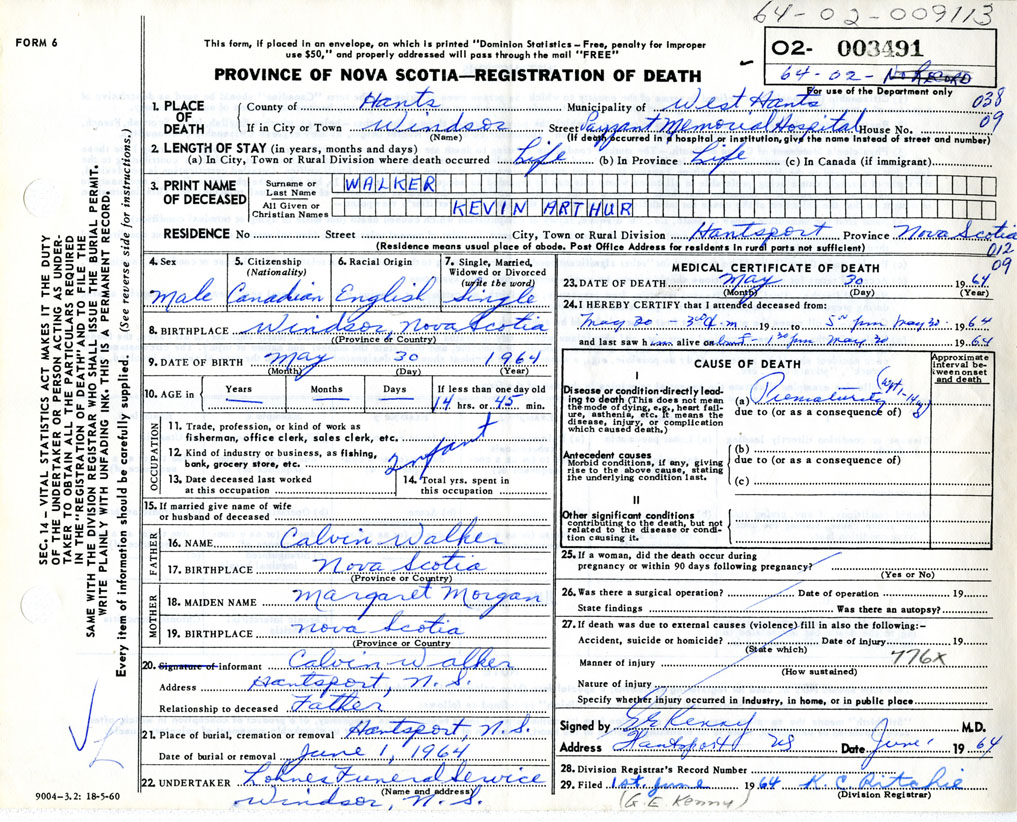 64-02-009113
FORM 6
This form, if placed in an envelope, on which is printed "Dominion Statistics – Free, penalty for improper
use $50," and properly addressed will pass through the mail "FREE"
02- 003491
64-02- No RECORD
For use of the Department only
PROVINCE OF NOVA SCOTIA—REGISTRATION OF DEATH
038
09
1. PLACE OF DEATH
County of Hants Municipality of West Hants
If in City or Town Windsor Street Payzant Memorial Hospital House No.
(Name) (If death occurred in a hospital or institution, give the name instead of street and number)
2. LENGTH OF STAY (in years, months and days)
(a) In City, Town or Rural Division where death occurred Life (b) In Province Life (c) In Canada (if immigrant)
3. PRINT NAME OF DECEASED
Surname or Last Name WALKER
All Given or Christian Names KEVIN ARTHUR
RESIDENCE No Street City, Town or Rural Division Hantsport Province Nova Scotia
(Residence means usual place of abode. Post Office Address for residents in rural parts not sufficient)
012
09
4. Sex Male
5. Citizenship (Nationality) Canadian
6. Racial Origin English
7. Single, Married, Widowed or Divorced (write the word) Single
8. BIRTHPLACE Windsor, Nova Scotia
(Province or Country)
9. DATE OF BIRTH May 30 1964
(Month) (Day) (Year)
10. AGE in Years — Months — Days — If less than one day old
14 hrs. or 45 min.
OCCUPATION
11. Trade, profession, or kind of work as
fisherman, office clerk, sales clerk, etc.
12. Kind of industry or business, as fishing,
bank, grocery store, etc.
Infant
13. Date deceased last worked
at this occupation
14. Total yrs. spent in
this occupation
15. If married give name of wife
or husband of deceased
FATHER
16. NAME Calvin Walker
17. BIRTHPLACE Nova Scotia
(Province or Country)
MOTHER
18. MAIDEN NAME Margaret Morgan
19. BIRTHPLACE Nova Scotia
(Province or Country
20. Signature of informant Calvin Walker
Address Hantsport, N.S.
Relationship to deceased Father
21. Place of burial, cremation or removal Hantsport, N.S.
Date of burial or removal June 1, 1964
22. UNDERTAKER Lohnes Funeral Service
(Name and address)
Windsor, N.S.
9004-3.2: 18-5-60
MEDICAL CERTIFICATE OF DEATH
23. DATE OF DEATH May 30 1964
(Month) (Day) (Year)
24. I HEREBY CERTIFY that I attended deceased from:
May 30 19 to 5 pm May 30 1964
and last saw him alive on May 30 1964
CAUSE OF DEATH
Approximate interval between onset and death
I
Disease or condition directly leading to death (This does not mean the mode of dying, e.g., heart failure, asthenia, etc. It means the disease, injury, or complication which caused death.)
(a) Prematurity
due to (or as a consequence of)
Antecedent causes
Morbid conditions, if any, giving rise to the above cause, stating the underlying condition last.
(b)
due to (or as a consequence of)
(c)
II
Other significant conditions
contributing to the death, but not related to the disease or condition causing it.
25. If a woman, did the death occur during
pregnancy or within 90 days following pregnancy?
(Yes or No)
26. Was there a surgical operation? Date of operation 19
State findings Was there an autopsy?
27. If death was due to external causes (violence) fill in also the following:-
Accident, suicide or homicide? Date of injury 19
(State which)
776X
Manner of injury
(How sustained)
Nature of injury
Specify whether injury occurred in industry, in home, or in public place
Signed by G E Kenny M.D.
Address Hantsport NS Date June 1 1964
28. Division Registrar's Record Number
29. Filed 1st. June 1964 K. C. Ritchie
(G. E. Kenny) (Division Registrar)
SEC. 14 – VITAL STATISTICS ACT MAKES IT THE DUTY
OF THE UNDERTAKER OR PERSON ACTING AS UNDER-
TAKER TO OBTAIN ALL THE PARTICULARS REQUIRED
IN THE "REGISTRATION OF DEATH" AND TO FILE THE
SAME WITH THE DIVISION REGISTRAR WHO SHALL ISSUE THE BURIAL PERMIT.
WRITE PLAINLY WITH UNFADING INK. THIS IS A PERMANENT RECORD.
Every item of information should be carefully supplied. (See reverse side for instructions.)